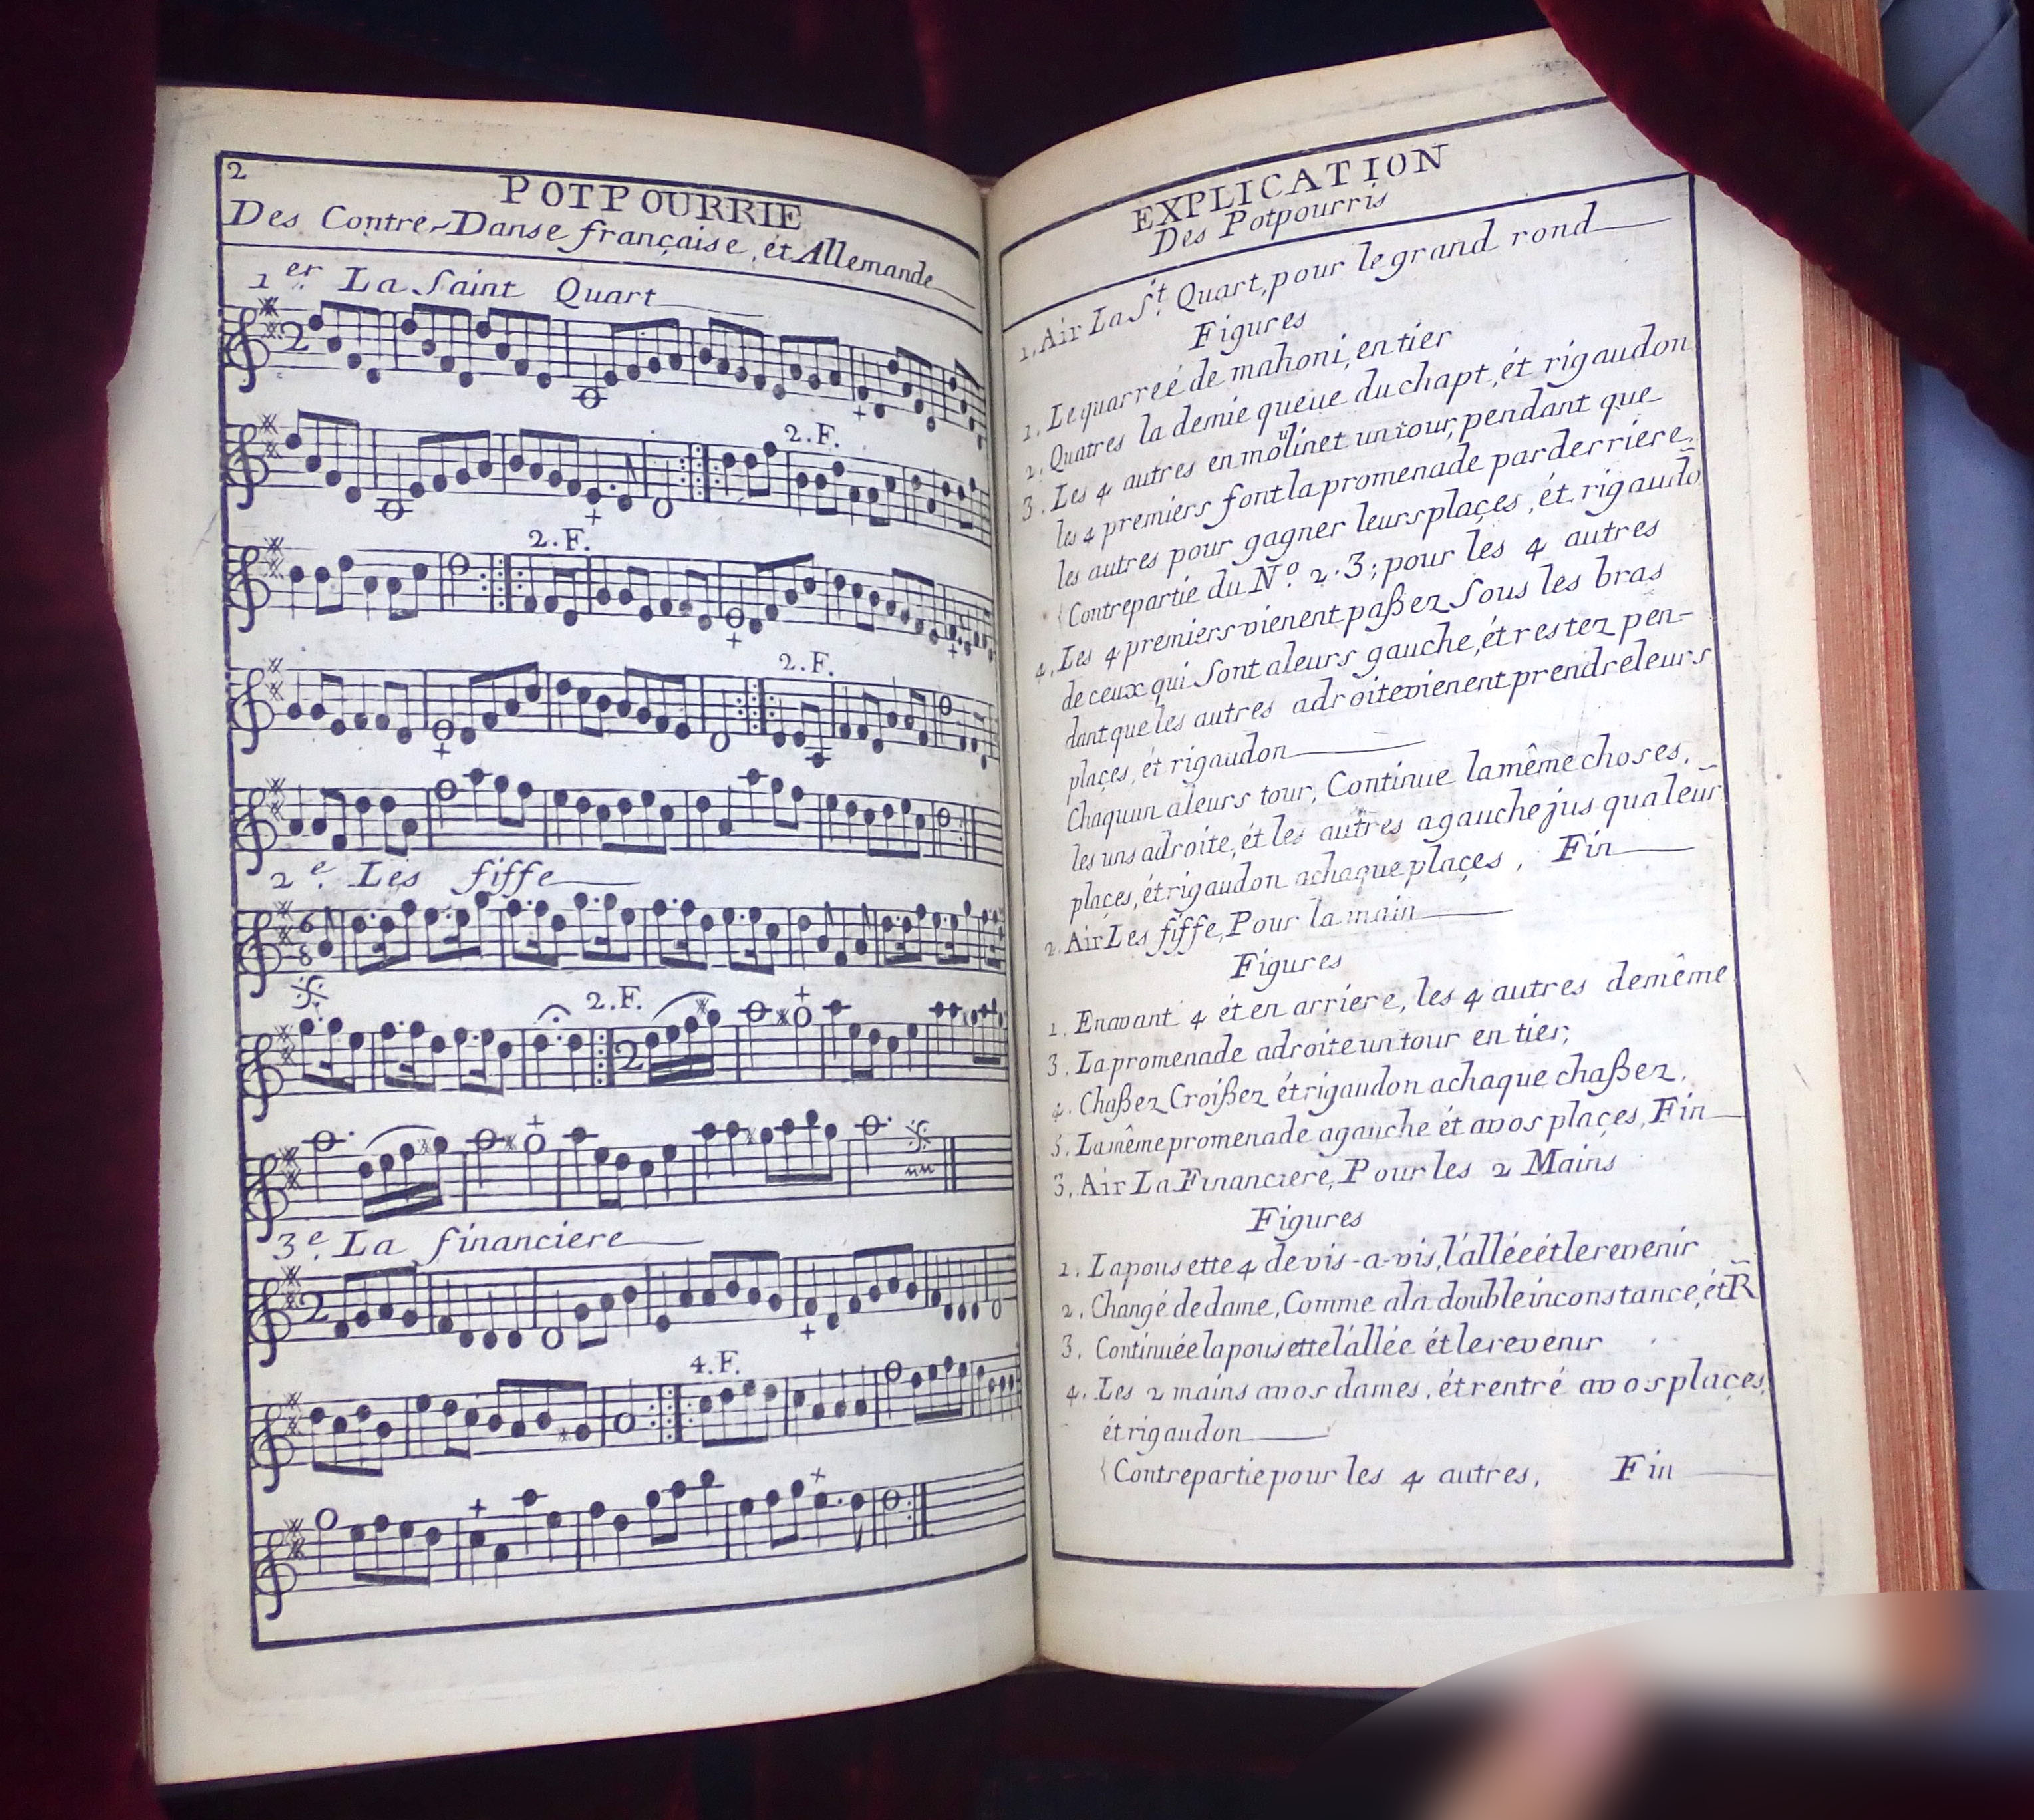 2
POTPOURRIE
Des Contre-Danse française, ét Allemande
1.er La Saint Quart
2
2.F.
2.F.
2.F.
2.e Les fiffe
6
8
2.F.
2
3.e La financiere
2
4.F.
EXPLICATION
Des Potpourris
1. Air La S.t Quart, pour le grand rond
Figures
1. Le quarreé de mahoni, en tier
2. Quatres la demie queue du chapt, ét rigaudon
3. Les 4 autres en moulinet un tour, pendant que
les 4 premiers font la promenade par derriere
les autres pour gagner leurs plaçes, ét rigaudõ
Contrepartie du N.o 2.3; pour les 4 autres
4. Les 4 premiers vienent paßez Sous les bras
de ceux qui Sont a leurs gauche, ét restez pen-
dant que les autres a droite vienent prendre leurs
plaçes, ét rigaudon
Chaquun a leurs tour, Continue la même choses,
les uns a droite, ét les autres a gauche jus qua leur̃
plaçes, ét rigaudon a chaque plaçes, Fin
2. Air Les fiffe, Pour la main
Figures
1. En avant 4 ét en arriere, les 4 autres de même
3. La promenade a droite un tour en tier;
4. Chaßez Croißez ét rigaudon a chaque chaßez,
5. La même promenade a gauche ét a vos plaçes, Fin
3. Air La Financiere, Pour les 2 Mains
Figures
1. La pousette 4 de vis-a-vis, l'allée ét le revenir
2. Changé de dame, Comme a la double inconstance, ét R̃
3. Continuée la pousette l'allée ét le revenir
4. Les 2 mains a vos dames, ét rentré a vos plaçes,
ét rigaudon
Contrepartie pour les 4 autres, Fin